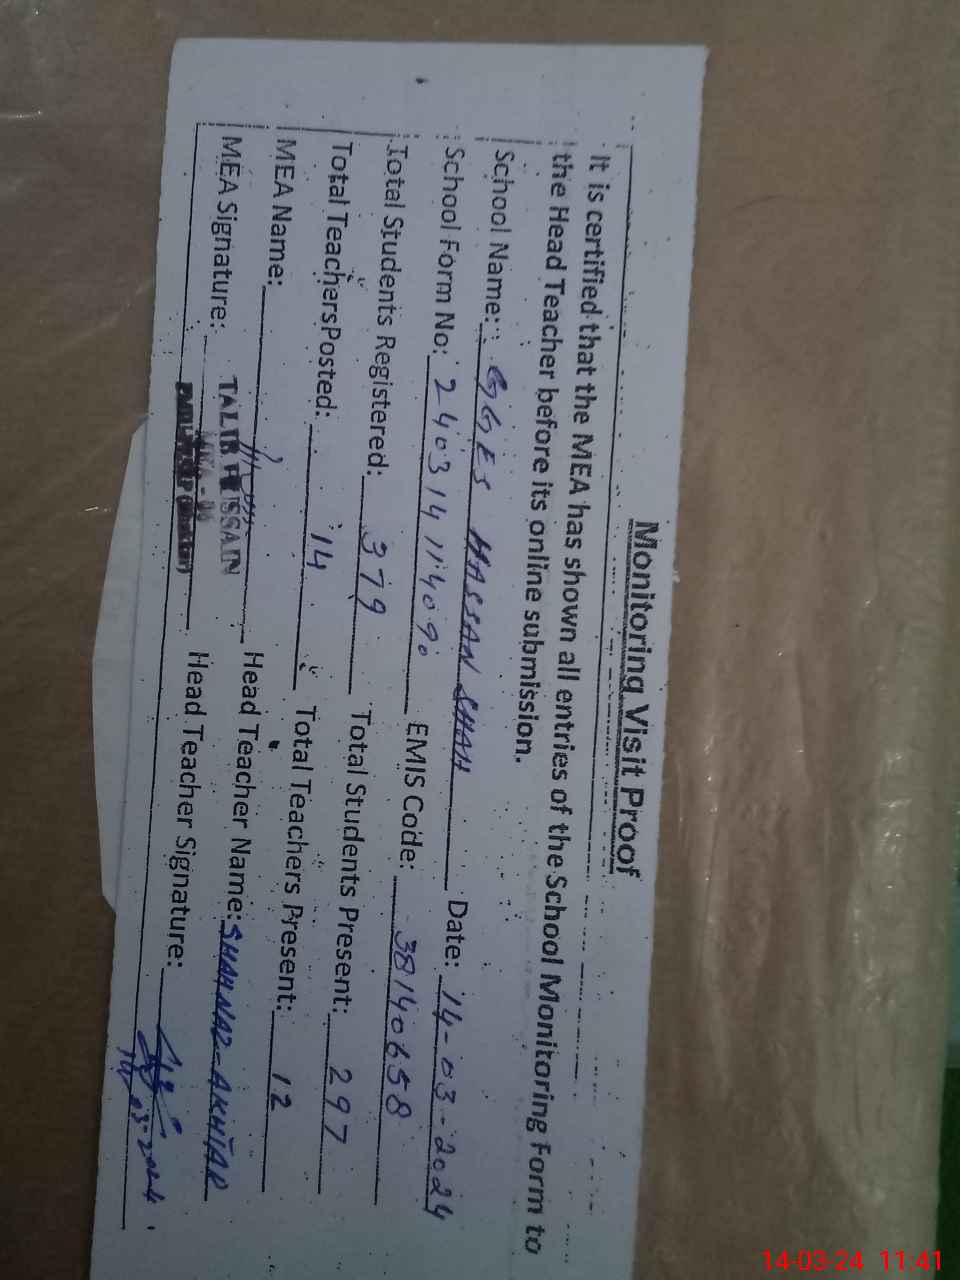 Monitoring Visit Proof
It is certified that the MEA has shown all entries of the School Monitoring Form to
the Head Teacher before its online submission.
School Name: GGES HASSAN SHAH Date: 14-03-2024
School Form No: 24031411409 EMIS Code: 38140658
Total Students Registered: 379 Total Students Present: 297
Total TeachersPosted: 14 Total Teachers Present: 12
MEA Name: TALIB HUSSAIN Head Teacher Name: SHAHNAZ-AKHTAR
MEA Signature: Head Teacher Signature:
14-03-2024
14-03-24 11:41